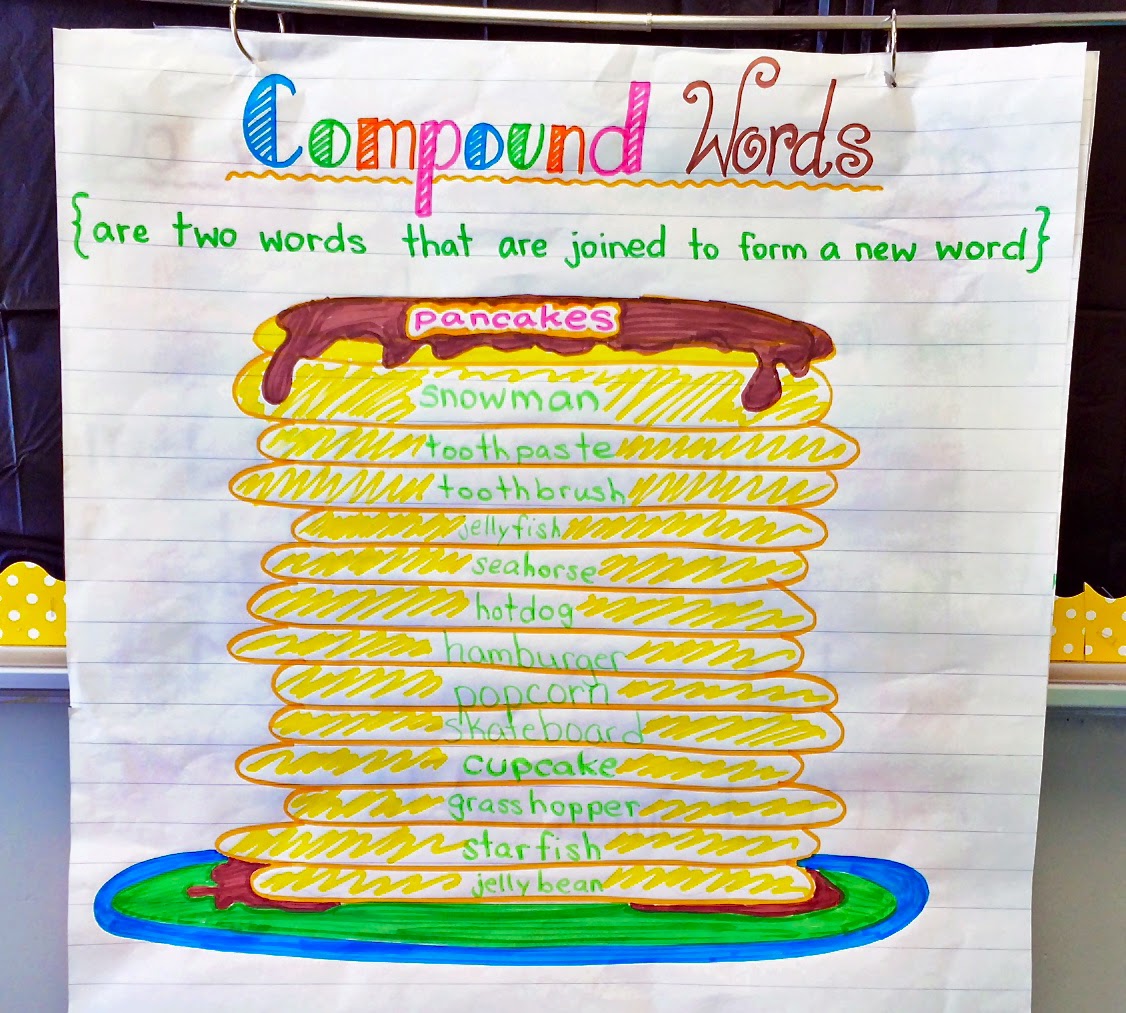 Compound Words
{are two words that are joined to form a new word}
pancakes
snowman
toothpaste
toothbrush
jellyfish
seahorse
hotdog
hamburger
popcorn
skateboard
cupcake
grasshopper
starfish
jellybean